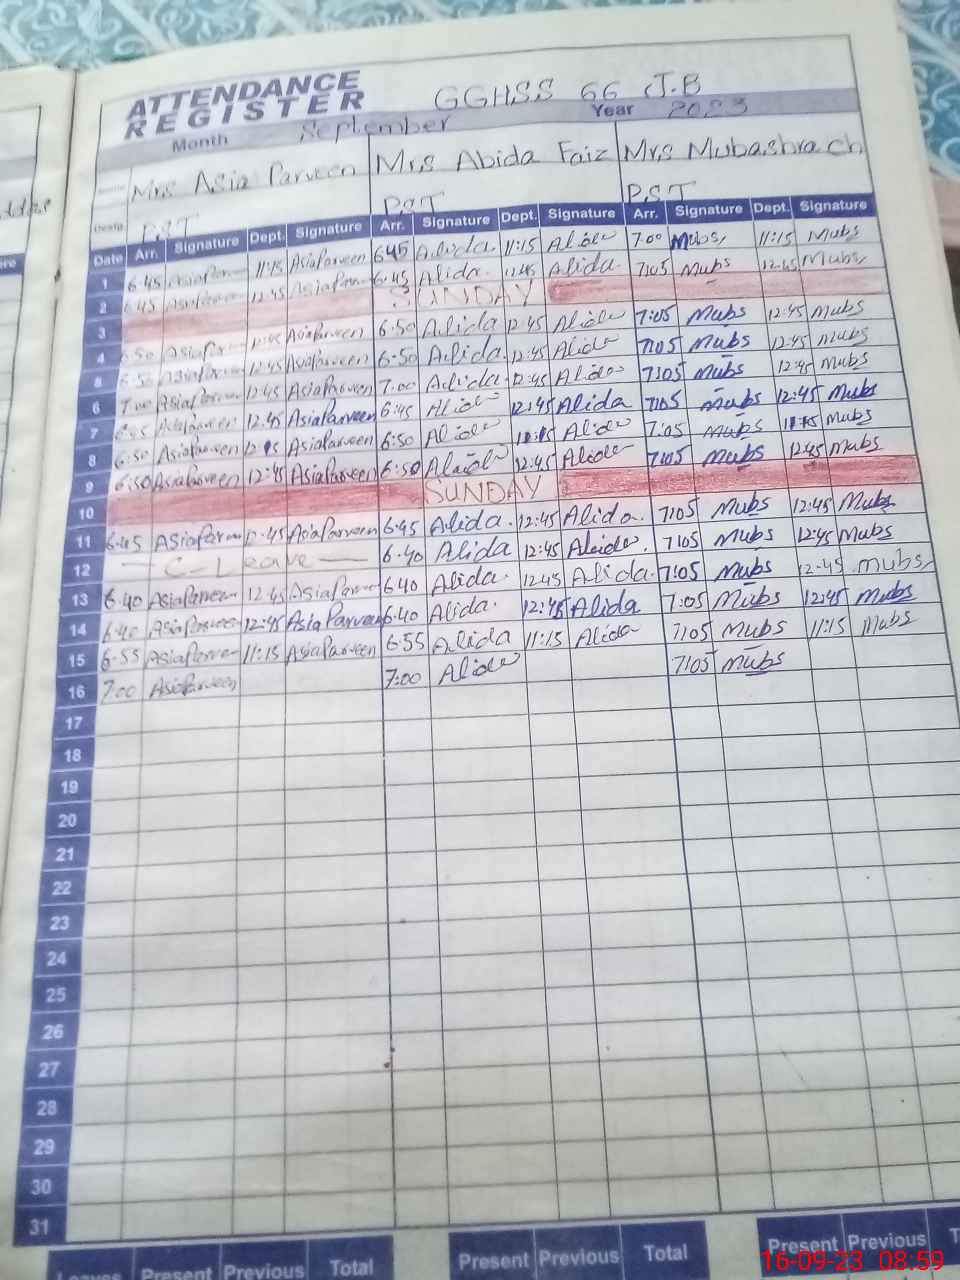 ATTENDANCE REGISTER GGHSS 66 J.B
Month September Year 2023
Mrs Asia Parveen Mrs Abida Faiz Mrs Mubashra ch
PST PST PST
Date Arr. Signature Dept. Signature Arr. Signature Dept. Signature Arr. Signature Dept. Signature
1 6:45 AsiaParveen 11:15 AsiaParveen 6:45 Alida 11:15 Alida 7:00 Mubs 11:15 Mubs
2 6:45 AsiaParveen 12:45 AsiaParveen 6:45 Alida 12:45 Alida 7:05 Mubs 12:45 Mubs
3 SUNDAY
4 6:50 AsiaParveen 12:45 AsiaParveen 6:50 Alida 12:45 Alida 7:05 Mubs 12:45 Mubs
5 6:50 AsiaParveen 12:45 AsiaParveen 6:50 Alida 12:45 Alida 7:05 Mubs 12:45 Mubs
6 7:00 AsiaParveen 12:45 AsiaParveen 7:00 Alida 12:45 Alida 7:05 Mubs 12:45 Mubs
7 6:45 AsiaParveen 12:45 AsiaParveen 6:45 Alida 12:45 Alida 7:05 Mubs 12:45 Mubs
8 6:50 AsiaParveen AsiaParveen 6:50 Alida 11:15 Alida 7:05 Mubs 11:15 Mubs
9 6:50 AsiaParveen 12:45 AsiaParveen 6:50 Alida 12:45 Alida 7:05 Mubs 12:45 Mubs
10 SUNDAY
11 6:45 AsiaParveen 12:45 AsiaParveen 6:45 Alida 12:45 Alida 7:05 Mubs 12:45 Mubs
12 C-Leave 6:40 Alida 12:45 Alida 7:05 Mubs 12:45 Mubs
13 6:40 AsiaParveen 12:45 AsiaParveen 6:40 Alida 12:45 Alida 7:05 Mubs 12:45 Mubs
14 6:40 AsiaParveen 12:45 AsiaParveen 6:40 Alida 12:45 Alida 7:05 Mubs 12:45 Mubs
15 6:55 AsiaParveen 11:15 AsiaParveen 6:55 Alida 11:15 Alida 7:05 Mubs 11:15 Mubs
16 7:00 AsiaParveen 7:00 Alida 7:05 Mubs
17
18
19
20
21
22
23
24
25
26
27
28
29
30
31
Leaves Present Previous Total Present Previous Total Present Previous
16-09-23 08:59